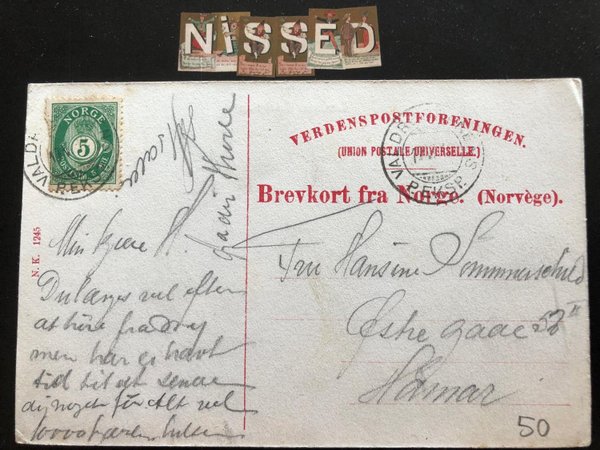 NiSSED
NORGE
5
VALDR
P.EKSP.
VALDR
P.EKSP. S
VERDENSPOSTFORENINGEN.
(UNION POSTALE UNIVERSELLE.)
Brevkort fra Norge. (Norvège).
N. K. 1245
Min kjære H.
Du længes vel efter
at høre fra
men har ei havt
tid til at sende
dig noget før Alt vel
Fru Hansine Sommerschild
Østre gade 52 II
Hamar
50